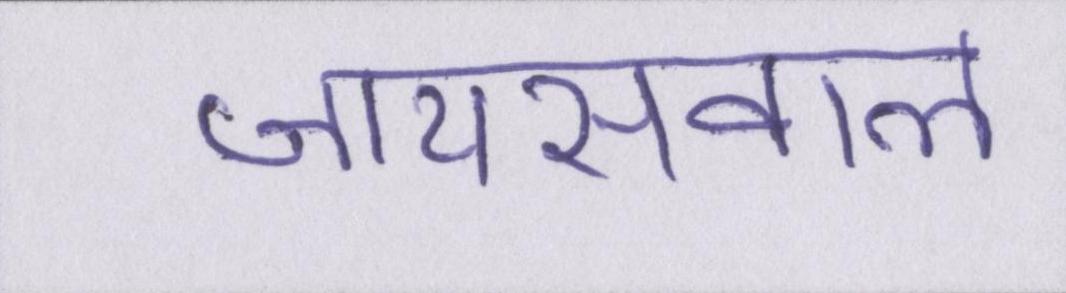 जायसवाल